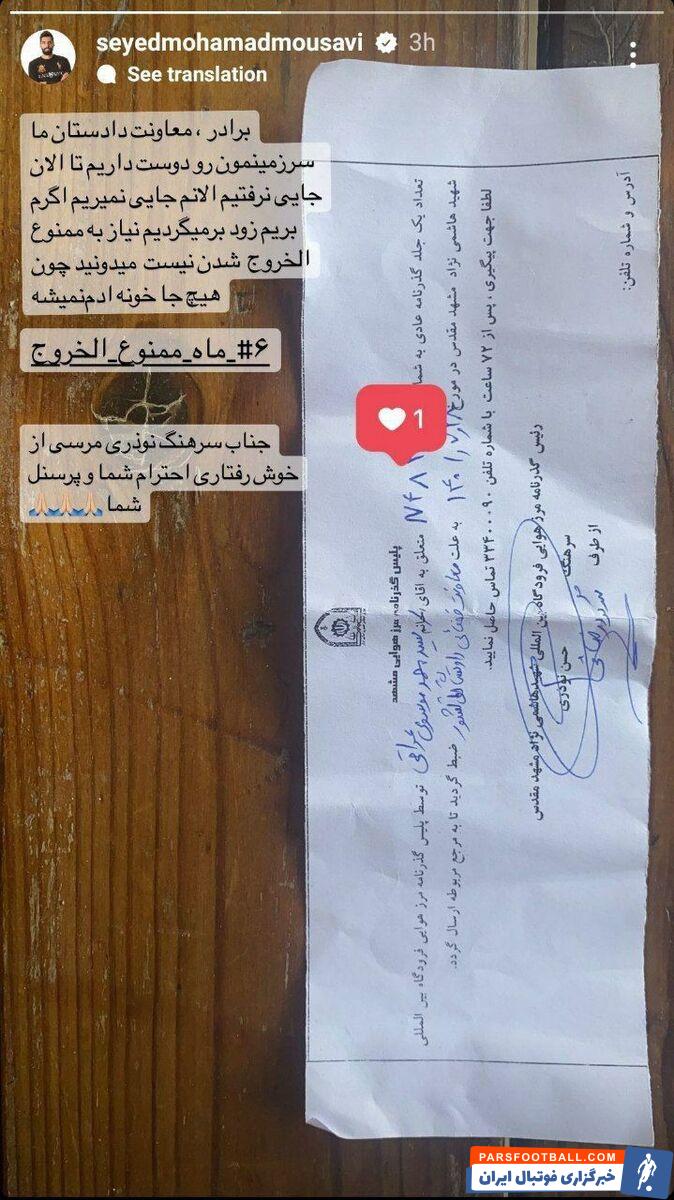 seyedmohamadmousavi 3h
See translation
برادر ، معاونت دادستان ما
سرزمینمون رو دوست داریم تا الان
جایی نرفتیم الانم جایی نمیریم اگرم
بریم زود برمیگردیم نیاز به ممنوع
الخروج شدن نیست میدونید چون
هیچ جا خونه ادم نمیشه
#۶_ماه_ممنوع_الخروج
جناب سرهنگ نوذری مرسی از
خوش رفتاری احترام شما و پرسنل
شما🙏🏻🙏🏻🙏🏻
1
پلیس گذرنامه مرز هوایی مشهد
تعداد یک جلد گذرنامه عادی به شما N48 متعلق به آقای/خانم سید محمد موسوی عراقی توسط پلیس گذرنامه مرز هوایی فرودگاه بین المللی
شهید هاشمی نژاد مشهد مقدس در مورخ به علت ضبط گردید تا به مرجع مربوطه ارسال گردد.
لطفا جهت پیگیری ، پس از ۷۲ ساعت با شماره تلفن ۳۳۴۰۰۰۹۰ تماس حاصل نمایید.
رئیس گذرنامه مرز هوایی فرودگاه بین المللی شهید هاشمی نژاد مشهد مقدس
سرهنگ حسن نوذری
از طرف
آدرس و شماره تلفن:
PARSFOOTBALL.COM
خبرگزاری فوتبال ایران